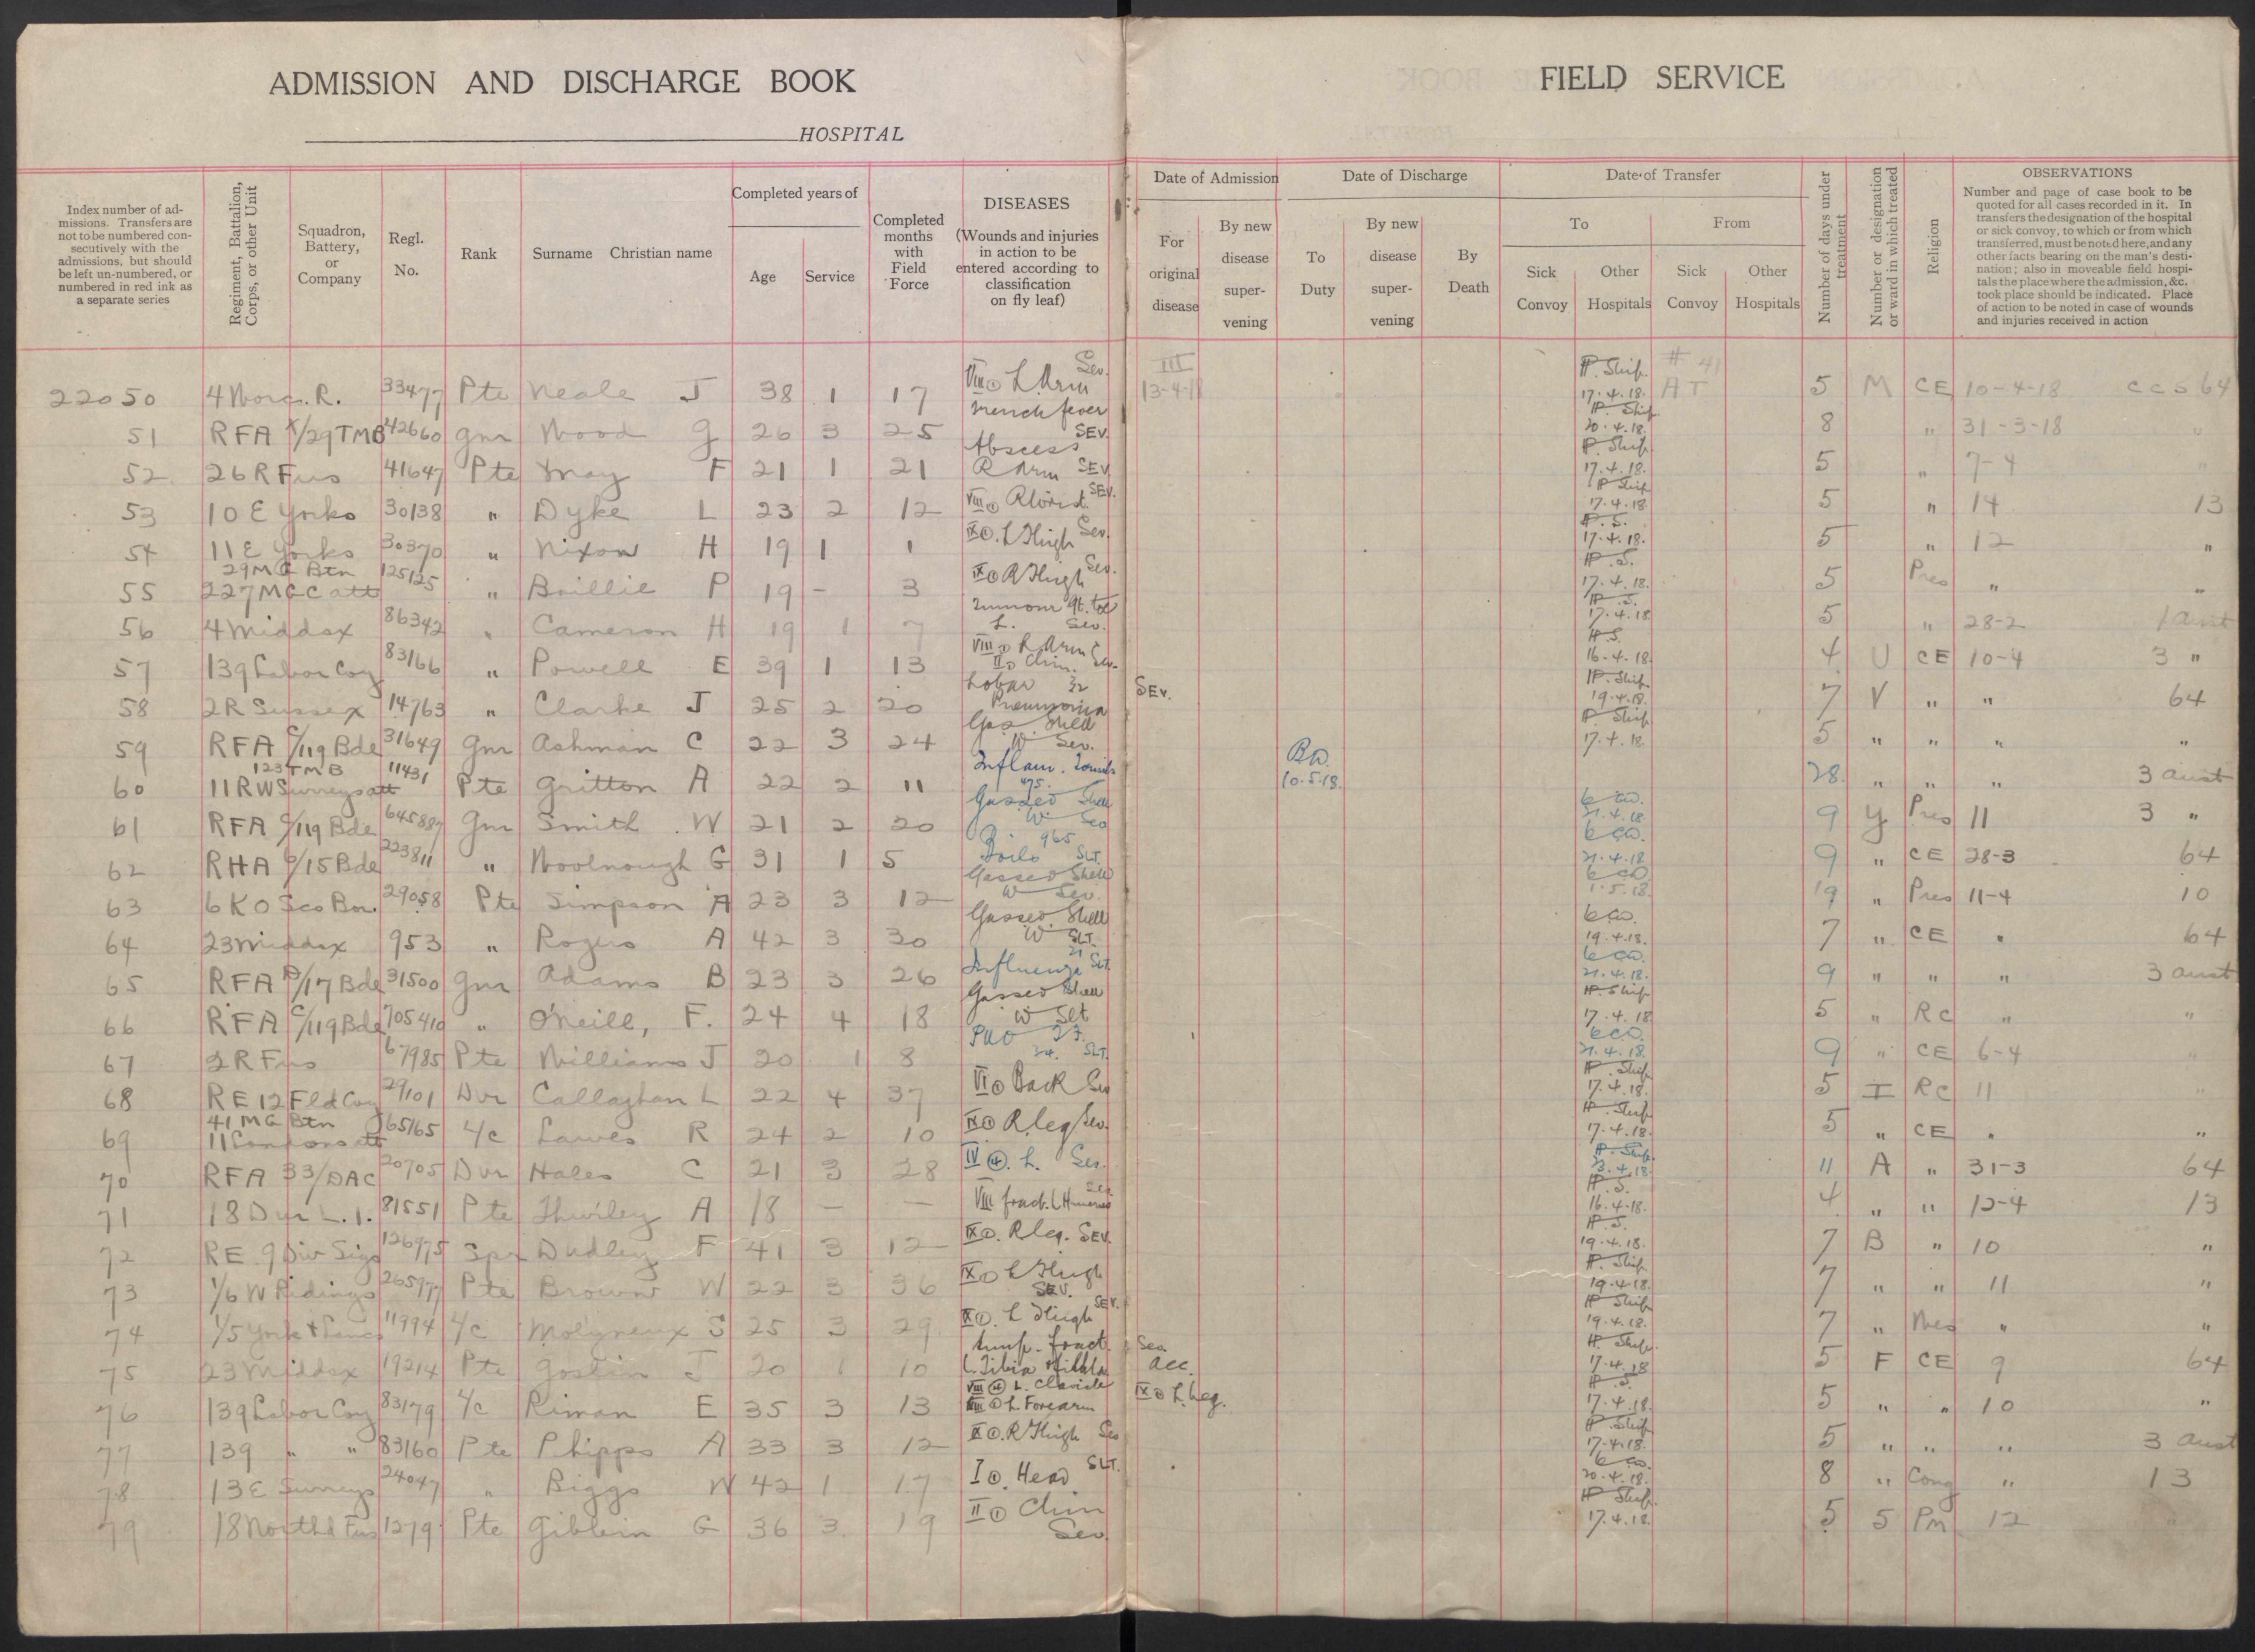 ADMISSION AND DISCHARGE BOOK
HOSPITAL
FIELD SERVICE
Index number of admissions. Transfers are not to be numbered consecutively with the admissions, but should be left un-numbered, or numbered in red ink as a separate series
Regiment, Battalion, Corps, or other Unit
Squadron, Battery, or Company
Regl. No.
Rank
Surname Christian name
Completed years of
Age
Service
Completed months with Field Force
DISEASES
(Wounds and injuries in action to be entered according to classification on fly leaf)
Date of Admission
For original disease
By new disease supervening
Date of Discharge
To Duty
By new disease supervening
By Death
Date of Transfer
To
From
Sick Convoy
Other Hospitals
Sick Convoy
Other Hospitals
Number of days under treatment
Number or designation or ward in which treated
Religion
OBSERVATIONS
Number and page of case book to be quoted for all cases recorded in it. In transfers the designation of the hospital or sick convoy, to which or from which transferred, must be noted here, and any other facts bearing on the man's destination; also in moveable field hospitals the place where the admission, &c. took place should be indicated. Place of action to be noted in case of wounds and injuries received in action
22050 4 Worcs. R. 33477 Pte Neale J 38 1 17 VIII① L Arm Sev. III 13-4-18 H. Ship 17.4.18. # 41 AT 5 M CE 10-4-18 CCS 64
51 RFA X/29 TMB 42660 Gnr Wood G 26 3 25 Trench fever SEV. H. Ship 20.4.18. 8 " 31-3-18 "
52 26 R Fus 41647 Pte May F 21 1 21 Abscess R Arm SEV. H. Ship 17.4.18. 5 " 7-4 "
53 10 E Yorks 30138 " Dyke L 23 2 12 VIII① R Wrist SEV. H Ship 17.4.18. 5 " 14 13
54 11 E Yorks 30370 " Nixon H 19 1 1 IX①. L Thigh Sev. H.S. 17.4.18. 5 " 12 "
55 29 MG Btn 227 MGC att 125125 " Baillie P 19 - 3 IX① R Thigh Sev. H.S. 17.4.18. 5 Pres " "
56 4 Middsx 86342 " Cameron H 19 1 7 L. Sev. H.S. 17.4.18 5 " 28-2 1 aust
57 139 Labor Coy 83166 " Powell E 39 1 13 VIII① R Arm Sev. II① Chin. H.S. 16.4.18. 4 U CE 10-4 3 "
58 2 R Sussex 14763 " Clarke J 25 2 20 Lobar Pneumonia SEV. H. Ship 19.4.18. 7 V " " 64
59 RFA C/119 Bde 31649 Gnr Ashman C 22 3 24 Gas Shell W Sev. H. Ship 17.4.18. 5 " " " "
60 123 TMB 11 RW Surreys att 11431 Pte Gritton A 22 2 11 10.5.18. 28. " " " 3 aust
61 RFA C/119 Bde 645887 Gnr Smith W 21 2 20 Gassed Shell W Sev 6 CD. 21.4.18 9 Y Pres 11 3 "
62 RHA /15 Bde 223811 " Woolnough G 31 1 5 Boils 965 SLT. 6 CD. 21.4.18 9 " CE 28-3 64
63 6 KO Sco Bor. 29058 Pte Simpson A 23 3 12 Gassed Shell W Sev. 6 CD 1.5.18. 19 " Pres 11-4 10
64 23 Middsx 953 " Rogers A 42 3 30 Gassed Shell W SLT. 6 CD. 19.4.18. 7 " CE " 64
65 RFA D/17 Bde 31500 Gnr Adams B 23 3 26 Influenza 21 SLT. 6 CD. 21.4.18. 9 " " " 3 aust
66 RFA C/119 Bde 705410 " O'Neill, F. 24 4 18 Gassed Shell W Slt H. Ship 17.4.18 5 " RC " "
67 2 R Fus 67985 Pte Williams J 20 1 8 PUO SLT. 6 CD. 21.4.18. 9 " CE 6-4 "
68 RE 12 Fld Coy 29101 Dvr Callaghan L 22 4 37 VI① Back Sev H. Ship 17.4.18. 5 I RC 11 "
69 41 MG Btn 11 Londons att 65165 L/c Lawes R 24 2 10 IX① R leg Sev. H. Ship 17.4.18. 5 " CE " "
70 RFA 33/DAC 20705 Dvr Hales C 21 3 28 IV④. L. Sev. H. Ship 23.4.18. 11 A " 31-3 64
71 18 Dur L.I. 81551 Pte Thwiley A 18 - - VIII fract. L Humerus Sev. H.S. 16.4.18. 4 " " 12-4 13
72 RE 9 Div Sigs 126975 Spr Dudley F 41 3 12 IX①. R leg. SEV. H.S. 19.4.18. 7 B " 10 "
73 1/6 W Ridings 265977 Pte Brown W 22 3 36 IX① L Thigh SEV. H. Ship 19.4.18. 7 " " 11 "
74 1/5 York & Lancs 11994 L/c Molyneux S 25 3 29 IX①. L Thigh SEV. H Ship 19.4.18. 7 " Wes " "
75 23 Middsx 19214 Pte Goslin J 20 1 10 fract. L. Tibia & Fibula Sev. acc. H. Ship. 17.4.18 5 F CE 9 64
76 139 Labor Coy 83179 L/c Riman E 35 3 13 VIII④ L. Clavicle VIII① L. Forearm IX① L. Leg. H.S. 17.4.18. 5 " " 10 "
77 139 " " 83160 Pte Phipps A 33 3 12 IX①. R Thigh Sev H. Ship 17.4.18. 5 " " " 3 aust
78 13 E Surreys 24047 " Biggs W 42 1 17 I①. Head SLT. 6 CD. 20.4.18. 8 " Cong " 13
79 18 North'd Fus 1279 Pte Giblin G 36 3 19 II① Chin Sev. H Ship. 17.4.18. 5 5 PM 12